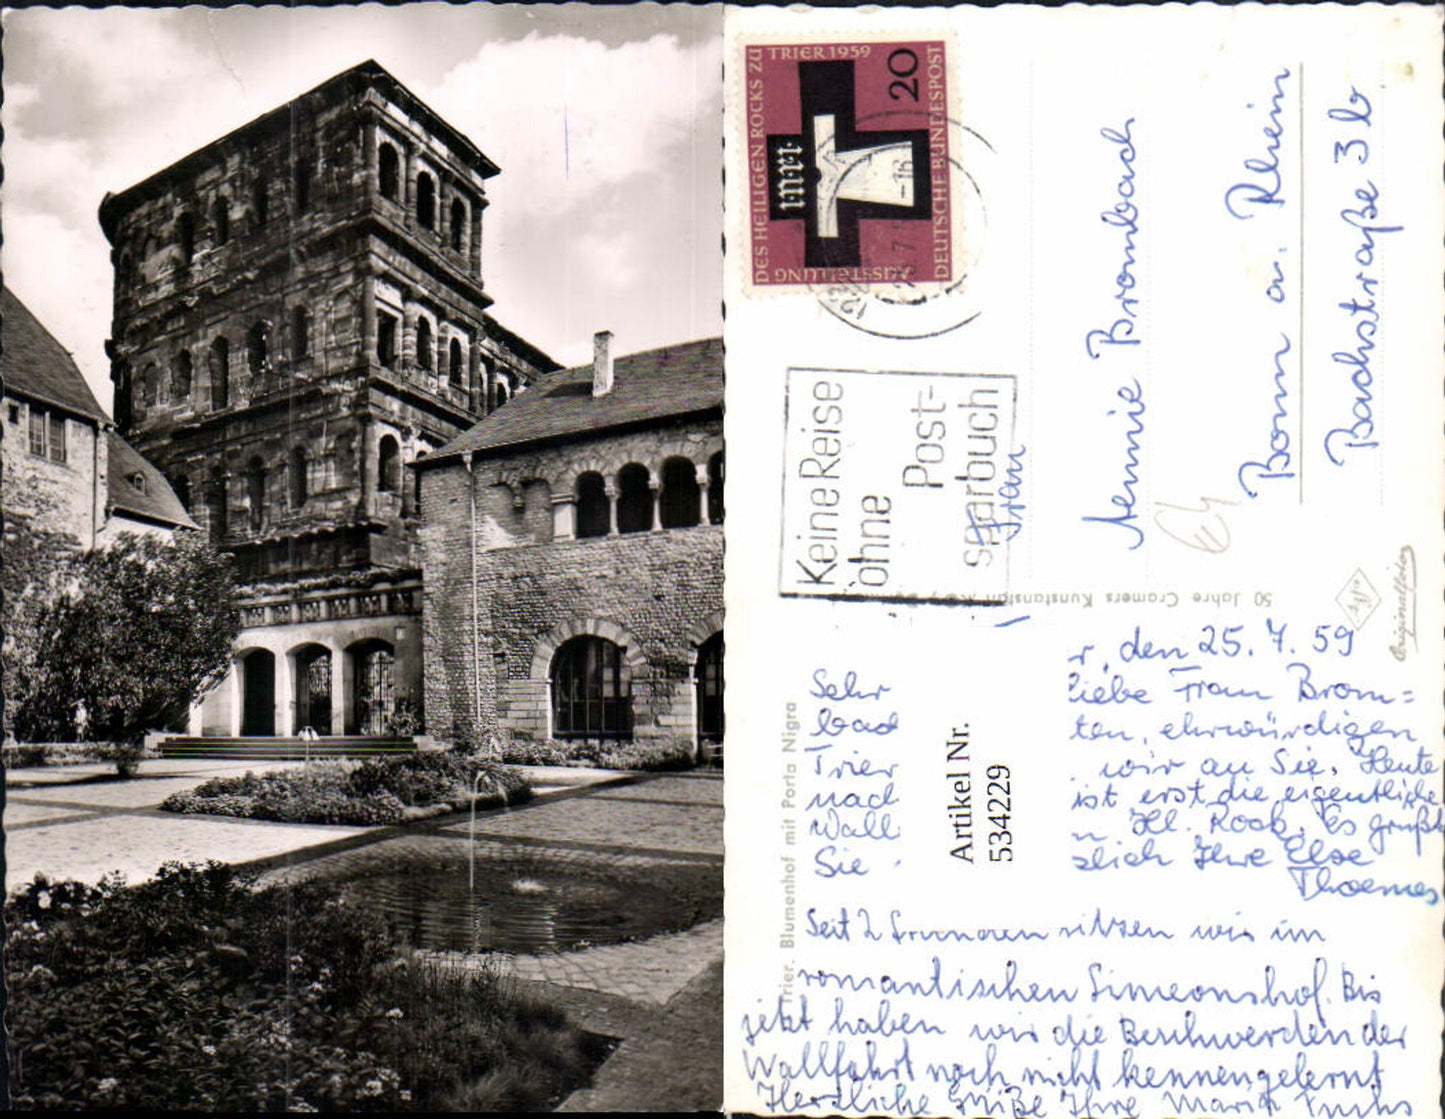 TRIER 1959
AUSSTELLUNG
DES HEILIGEN ROCKS ZU
DEUTSCHE BUNDESPOST
20
inri
Keine Reise
ohne
Post-
sparbuch
Frau
Aennie Brombach
Bonn a. Rhein
Bachstraße 3b
50 Jahre Cramers Kunstanstalt
Originalfoto
Trier. Blumenhof mit Porta Nigra
Artikel Nr.
534229
r, den 25. 7. 59
Sehr liebe Frau Brom=
bach ten, ehrwürdigen
Trier wir an Sie. Heute
nach ist erst die eigentliche
Wall n Hl. Rock. Es grüßt
Sie zlich Ihre Else
Thoemes
Seit 2 Stunden sitzen wir im
romantischen Simeonshof. Bis
jetzt haben wir die Beschwerden der
Wallfahrt noch nicht kennengelernt
Herzliche Grüße Ihre Maria Fuchs